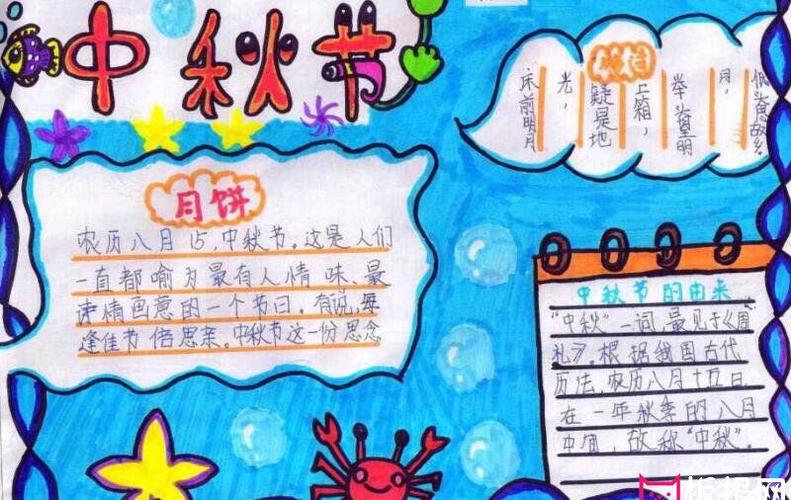 中秋节
床前明月
光，
疑是地
上箱，
举头望明
月，
低头思故乡
月饼
农历八月15,中秋节。这是人们
一直都喻为最有人情味、最
诗情画意的一个节日。有说，每
逢佳节倍思亲。中秋节这一份思念
中秋节的由来
“中秋”一词，最见于《周
礼》，根据我国古代
历法，农历八月十五日
在一年秋季的八月
中旬，故称“中秋”。